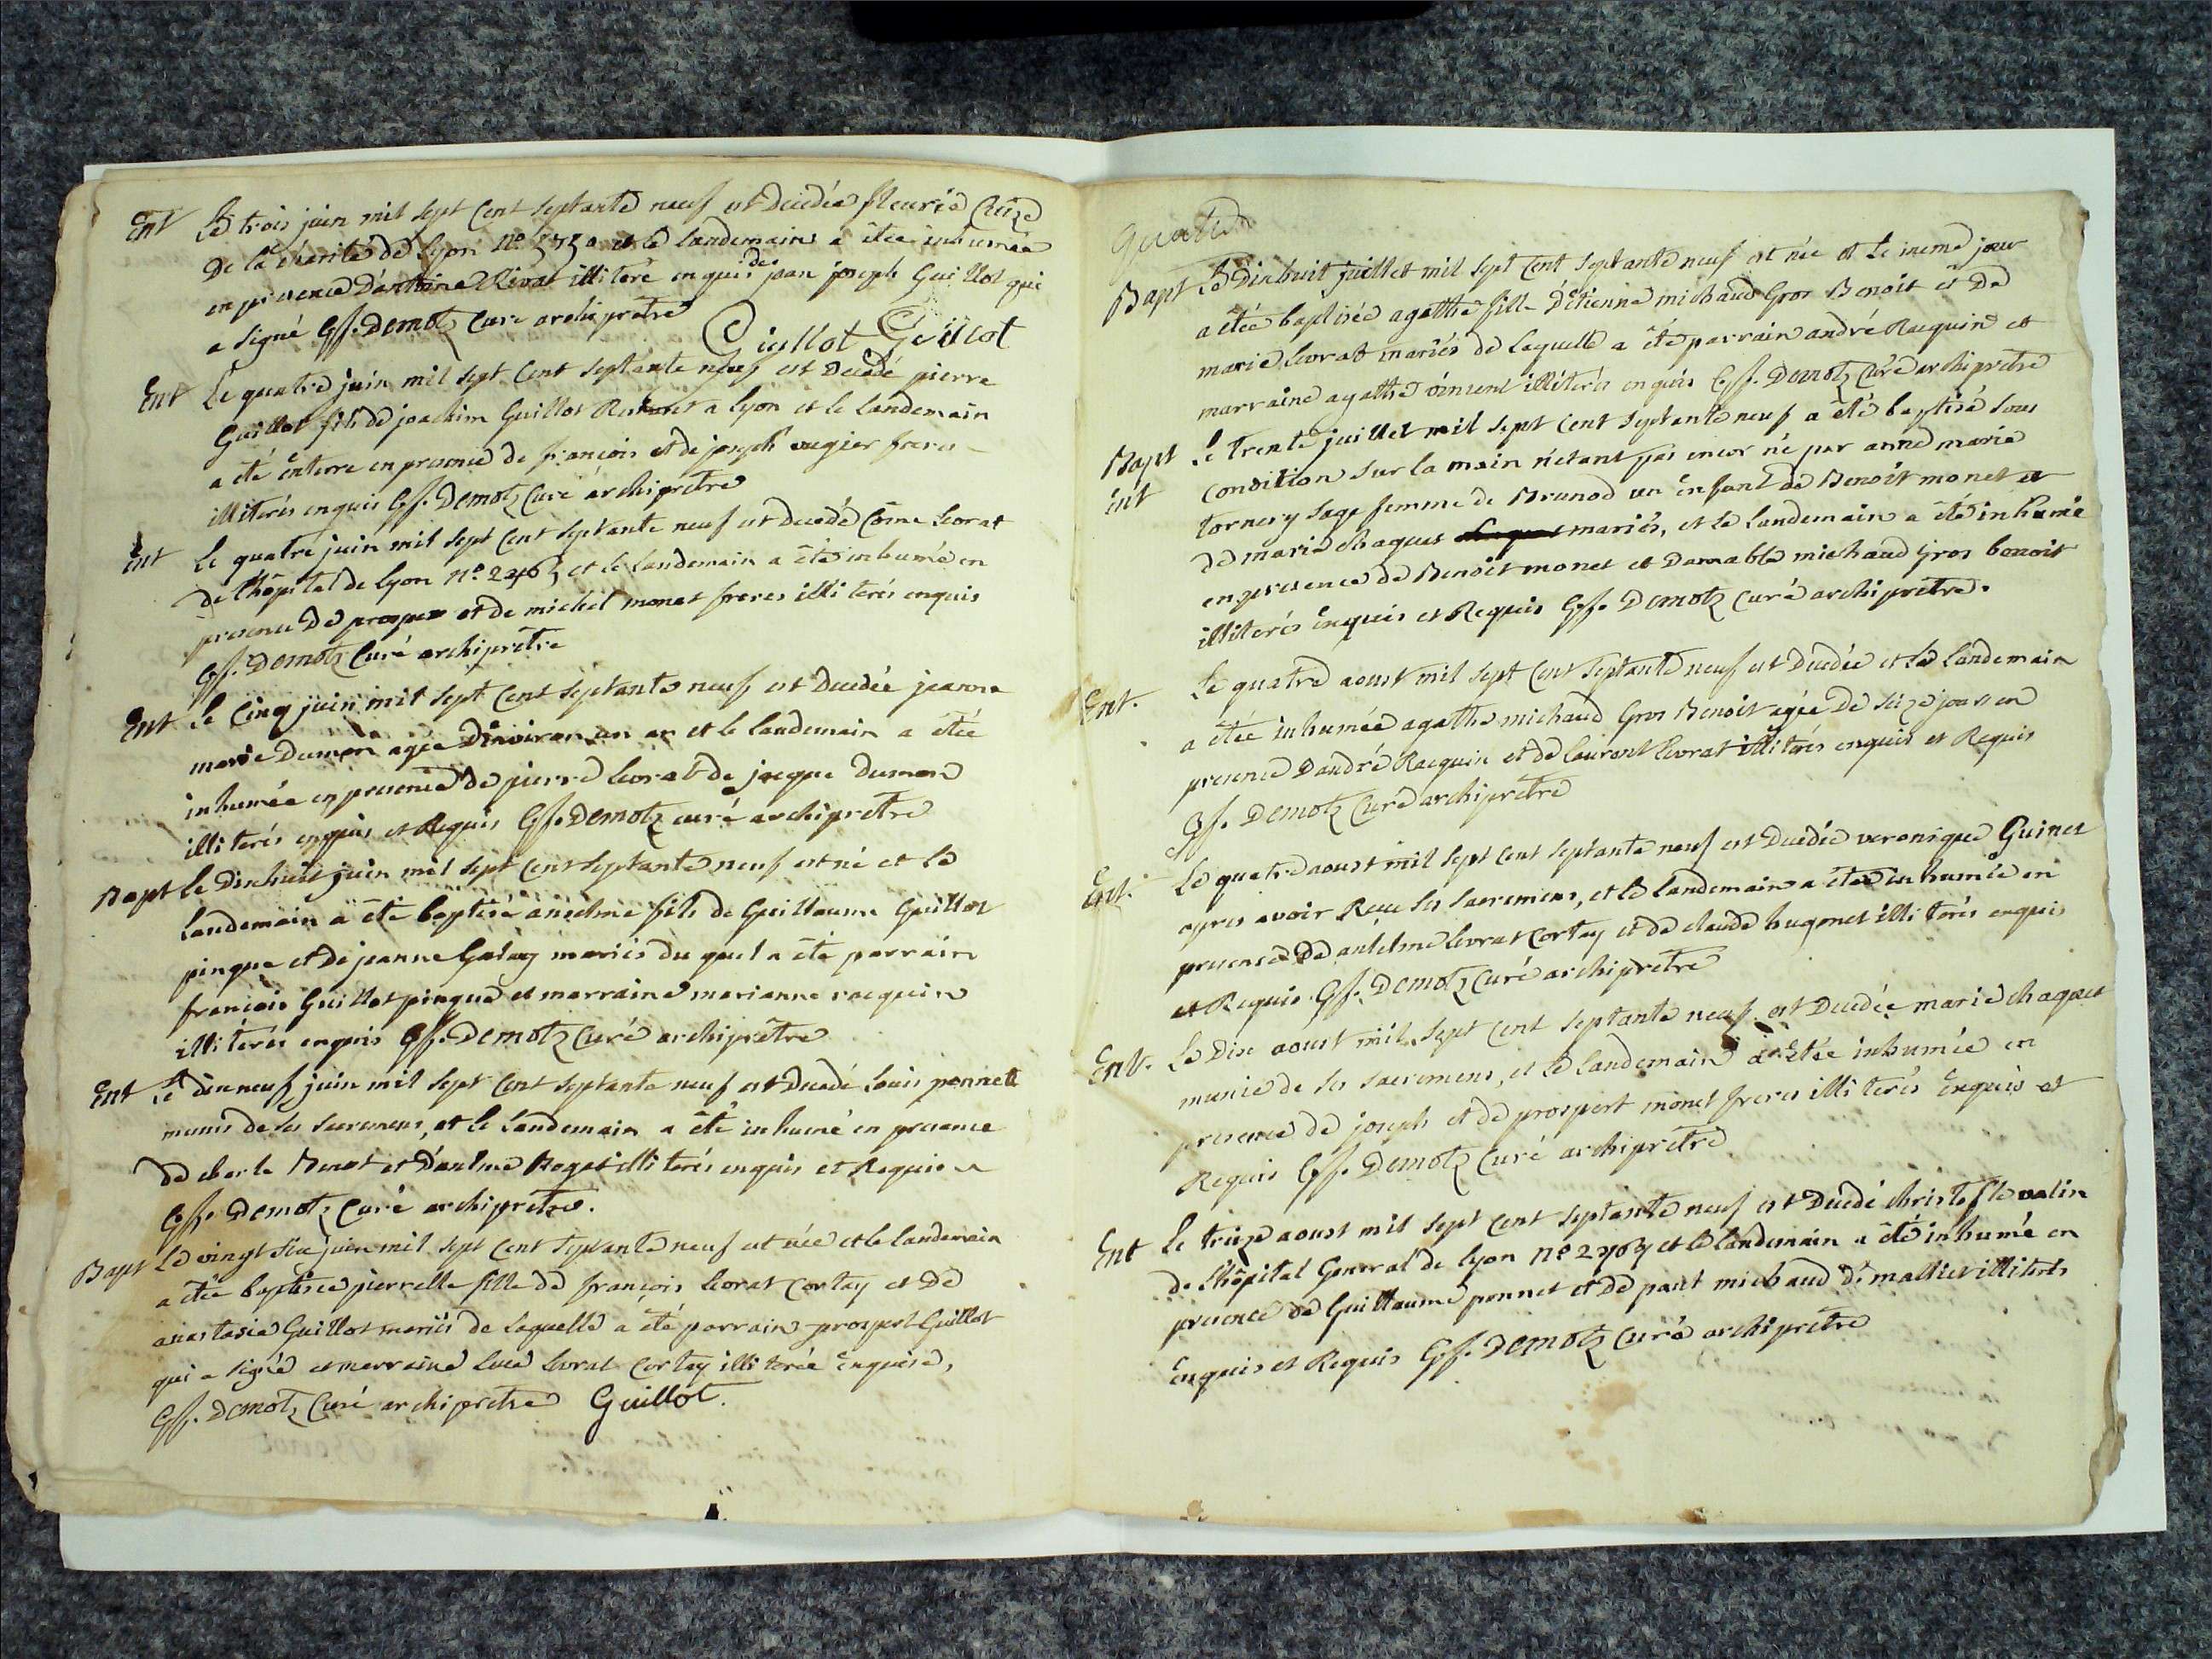 Ent Le trois juin mil sept cent septante neuf est decedée fleurie Creize
De la charité de lyon n.º et le landemains a étée inhumée
en presence D'antoine Rivat illiteré enquis de jean joseph Guillot qui
a signé Gſ. Demotz Curé archiprêtre Guillot Guillot
Ent Le quatre juin mil sept cent septante neuf est Decedé pierre
Guillot fils de joachim Guillot a lyon et le landemain
a été enterre en presence de françois et de joseph augier freres
illiterés enquis Gſ. Demotz Curé archiprêtre
Ent Le quatre juin mil sept cent septante neuf est decedé Côme levrat
de l'hôpital de lyon n.º et le landemain a été inhumé en
presence De prosper et de michel monet freres illi terés enquis
Gſ. Demotz Curé archiprêtre
Ent Le Cinq juin mil sept cent septante neuf est Decedée jeanne
marie Dumon agée D'environ un an et le landemain a étée
inhumée en presence de pierre levrat de jacque Dumon
illi terés enquis et Requis Gſ. Demotz curé archiprêtre
Bapt Le Dixhuit juin mil sept cent septante neuf est né et le
landemain a été baptisé anselme fils de Guillaume Guillot
pingue et de jeanne mariés du quel a été parrain
francois Guillot pingue et marraine marianne racquin
illi térés enquis Gſ. Demotz Curé archiprêtre
Ent Le dixneuf juin mil sept cent septante neuf est Decedé Louis ponnet
munis de ses sacremens, et le landemain a été inhumé en presence
de charle et illi terés enquis et Requis
Gſ. Demotz Curé archiprêtre.
Bapt Le vingt six juin mil sept cent septante neuf est née et le landemain
a étée baptisée pierrette fille de françois levrat cortay et De
anastasie Guillot mariés de laquelle a été parrain prospert Guillot
qui a signé et marraine levrat cortay illi terée Enquise,
Gſ. Demotz Curé archiprêtre Guillot.
quatre
Bapt Le Dixhuit juillet mil sept cent septante neuf est née et le meme jour
a étée baptisée agathe fille D'étienne michaud Gros Benoit et De
marie levrat mariés de laquelle a été parrain andré Racquin et
marraine agathe vincent illiterés enquis Gſ. Demotz Curé archiprêtre
Bapt Le Trente juillet mil sept cent septante neuf a été baptisé sous
ent condition sur la main n'étant pas encor né par anne marie
tornery sage femme de Brunod un enfant de Benoit monet et
de marie chaquet mariés, et le landemain a été inhumé
en presence de Benoit monet et Damable michaud Gros benoit
illiterés Enquis et Requis Gſ. Demotz curé archiprêtre.
Ent. Le quatre aoust mil sept cent septante neuf est decedée et le landemain
a étée inhumée agathe michaud Gros Benoit agée De seize jours en
presence D'andré Racquin et de laurent levrat illiterés enquis et Requis
Gſ. Demotz Curé archiprêtre
Ent. Le quatre aoust mil sept cent septante neuf est Decedée veronique Guinet
apres avoir Receu ses sacremens, et le landemain a étée inhumée en
presence De antelme levrat cortay et de claude hugonet illi terés enquis
et Requis Gſ. Demotz Curé archiprêtre
Ent. Le Dix aoust mil sept cent septante neuf est Decedée marie chaquet
munie de ses sacremens, et le landemain a étée inhumée en
presence de joseph et de prospert monet freres illi terés Enquis et
Requis Gſ. Demotz Curé archiprêtre
Ent Le treize aoust mil sept cent septante neuf est Decedé christofle valin
de L'hôpital General de lyon n.º et le landemain a été inhumé en
presence de Guillaume ponnet et de paul michaud Dé mathiet illiterés
Enquis et Requis Gſ. Demotz Curé archiprêtre